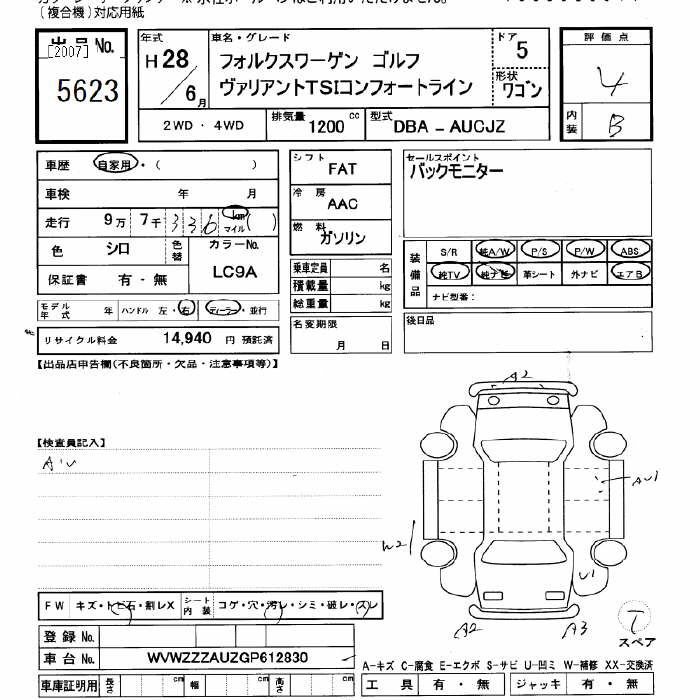 (複合機)対応用紙
出品No.
[2007]
5623
年式
H28/6月
車名・グレード
フォルクスワーゲン ゴルフ
ヴァリアントTSIコンフォートライン
ドア
5
形状
ワゴン
評価点
4
内装
B
2WD・4WD
排気量 1200 cc
型式 DBA－AUCJZ
車歴 自家用・( )
車検 年 月
走行 9万 7千 336 km マイル ( )
色 シロ 色替
カラーNo.
LC9A
保証書 有・無
モデル年式 年 ハンドル 左・右 ディーラー・並行
リサイクル料金 14,940 円 預託済
シフト
FAT
冷房
AAC
燃料
ガソリン
乗車定員 名
積載量 kg
総重量 kg
名変期限
月 日
セールスポイント
バックモニター
装備品
S/R 純A/W P/S P/W ABS
純TV 純ナビ 革シート 外ナビ エアB
ナビ型番：
後日品
【出品店申告欄(不良箇所・欠品・注意事項等)】
【検査員記入】
A2
AU1
W2
U1
A2
A3
スペア
FW キズ・トビ石・割レX
シート内装 コゲ・穴・汚レ・シミ・破レ・スレ
登録No.
車台No. WVWZZZAUZGP612830
車庫証明用 長さ cm 幅 cm 高さ cm
A-キズ C-腐食 E-エクボ S-サビ U-凹ミ W-補修 XX-交換済
工具 有・無 ジャッキ 有・無